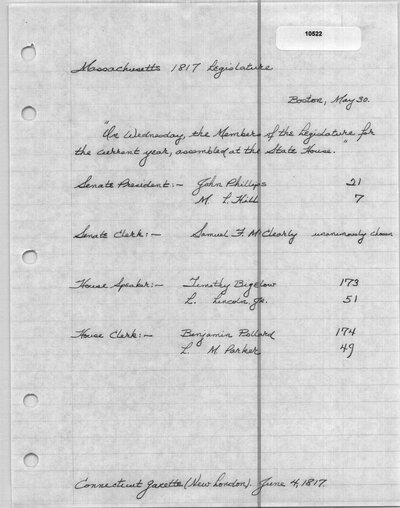 10522
Massachusetts 1817 Legislature
Boston, May 30.
"On Wednesday, the Members of the Legislature for
the current year, assembled at the State House."
Senate President:- John Phillips 21
M. L. Hill 7
Senate Clerk:- Samuel F. McCleary unanimously chosen
House Speaker:- Timothy Bigelow 173
L. Lincoln, Jr. 51
House Clerk:- Benjamin Pollard 174
L. M Parker 49
Connecticut Gazette (New London). June 4, 1817.